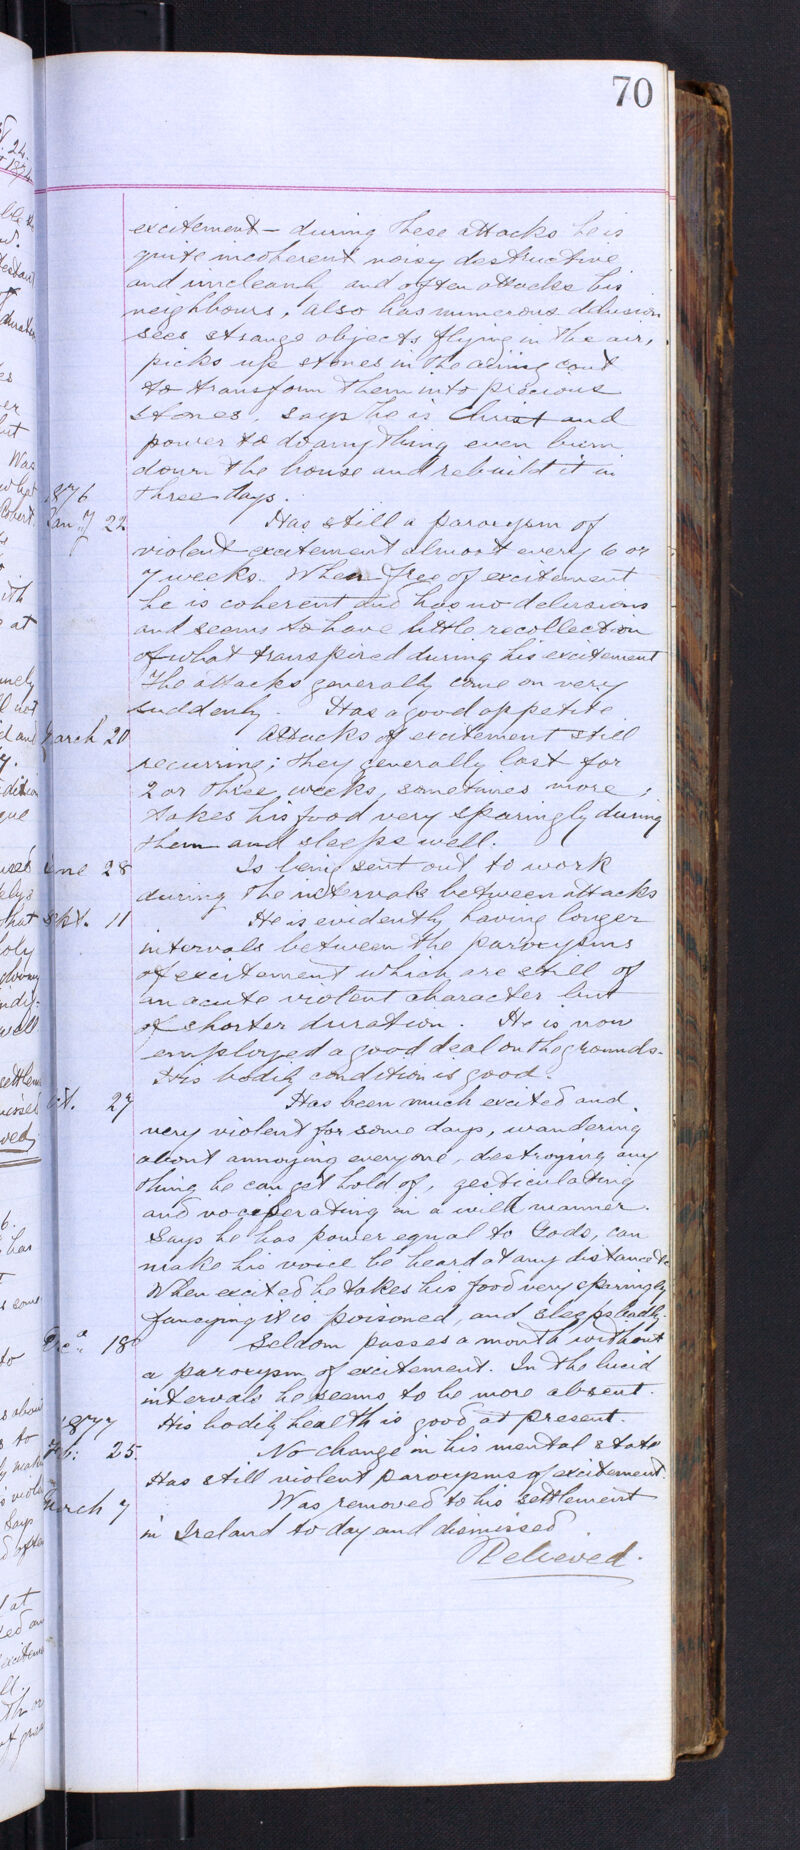 70
excitement – during these attacks he is
quite incoherent noisy destructive
and uncleanly and often attacks his
neighbours, also has numerous delusion
sees strange objects flying in the air,
picks up stones in the airing court
to transform them into precious
stones, says he is Christ and
power to do anything even burn
down the house and rebuild it in
1876
three days.
Jan:y 22 Has still a paroxysm of
violent excitement almost every 6 or
7 weeks. When free of excitement
he is coherent and has no delusions
and seems to have little recollection
of what transpired during his excitement
The attacks generally come on very
suddenly. Has a good appetite
March 20 Attacks of excitement still
recurring; they generally last for
2 or three weeks, sometimes more,
takes his food very sparingly during
them and sleeps well.
June 28 Is being sent out to work
during the intervals between attacks
Sept. 11 He is evidently having longer
intervals between the paroxysms
of excitement which are still of
an acute violent character but
of shorter duration. He is now
employed a good deal on the grounds.
His bodily condition is good.
Oct. 27 Has been much excited and
very violent for some days, wandering
about annoying everyone, destroying any
thing he can get hold of, gesticulating
and vociferating in a wild manner.
Says he has power equal to Gods, can
make his voice be heard at any distance &c
When excited he takes his food very sparingly
fancying it is poisoned, and sleeps badly.
Dec:r 18 Seldom passes a month without
a paroxysm of excitement. In the lucid
intervals he seems to be more absent.
His bodily health is good at present.
1877
Feb: 25. No change in his mental state
Has still violent paroxysms of excitement.
March 7 Was removed to his settlement
in Ireland to day and dismissed
Relieved.